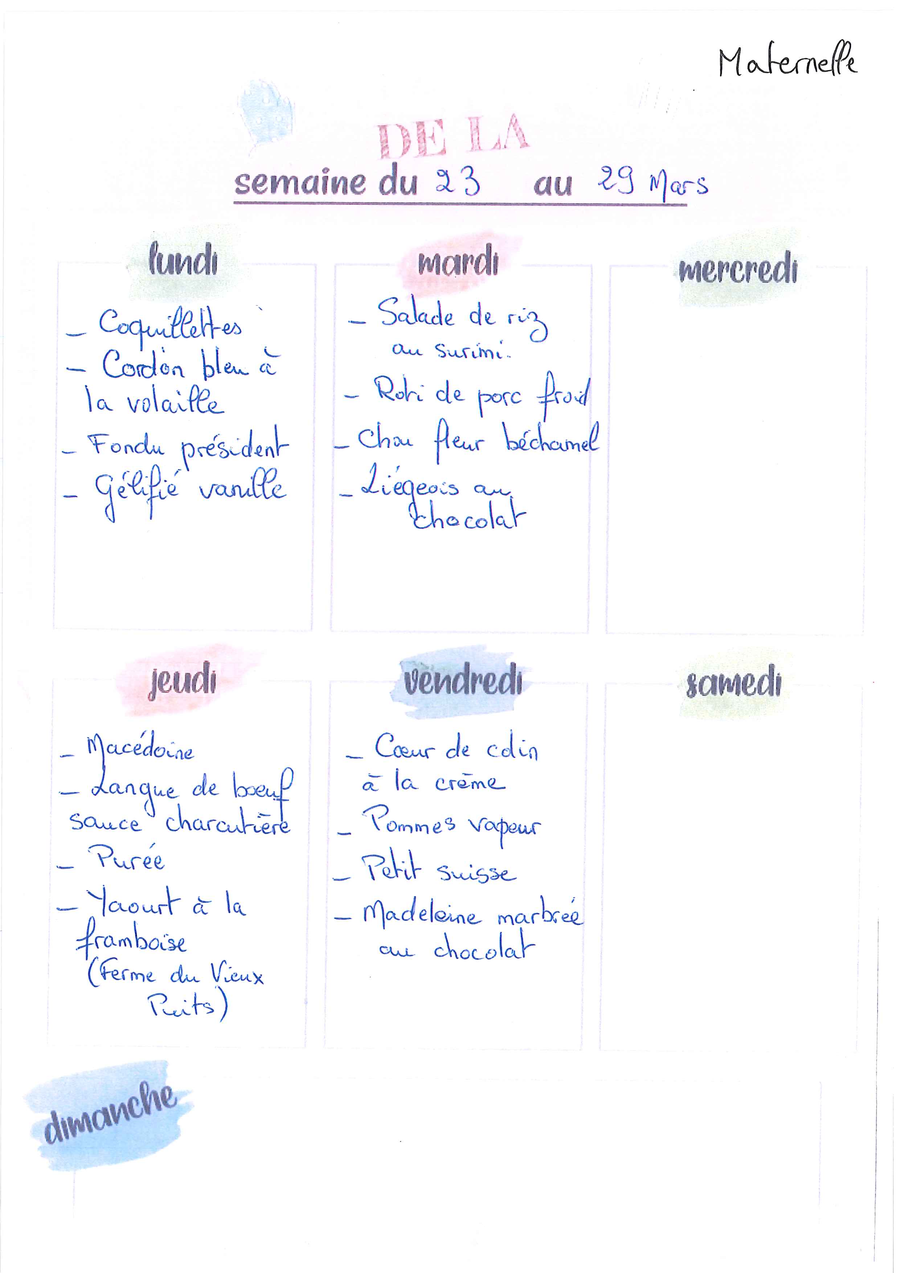 Maternelle
DE LA
semaine du 23 au 29 Mars
lundi
- Coquillettes
- Cordon bleu à
la volaille
- Fondu président
- Gélifié vanille
mardi
- Salade de riz
au surimi.
- Roti de porc froid
- Chou fleur béchamel
- Liégeois au
chocolat
mercredi
jeudi
- Macédoine
- Langue de boeuf
sauce charcutière
- Purée
- Yaourt à la
framboise
(Ferme du Vieux
Puits)
vendredi
- Cœur de colin
à la crème
- Pommes vapeur
- Petit suisse
- Madeleine marbrée
au chocolat
samedi
dimanche